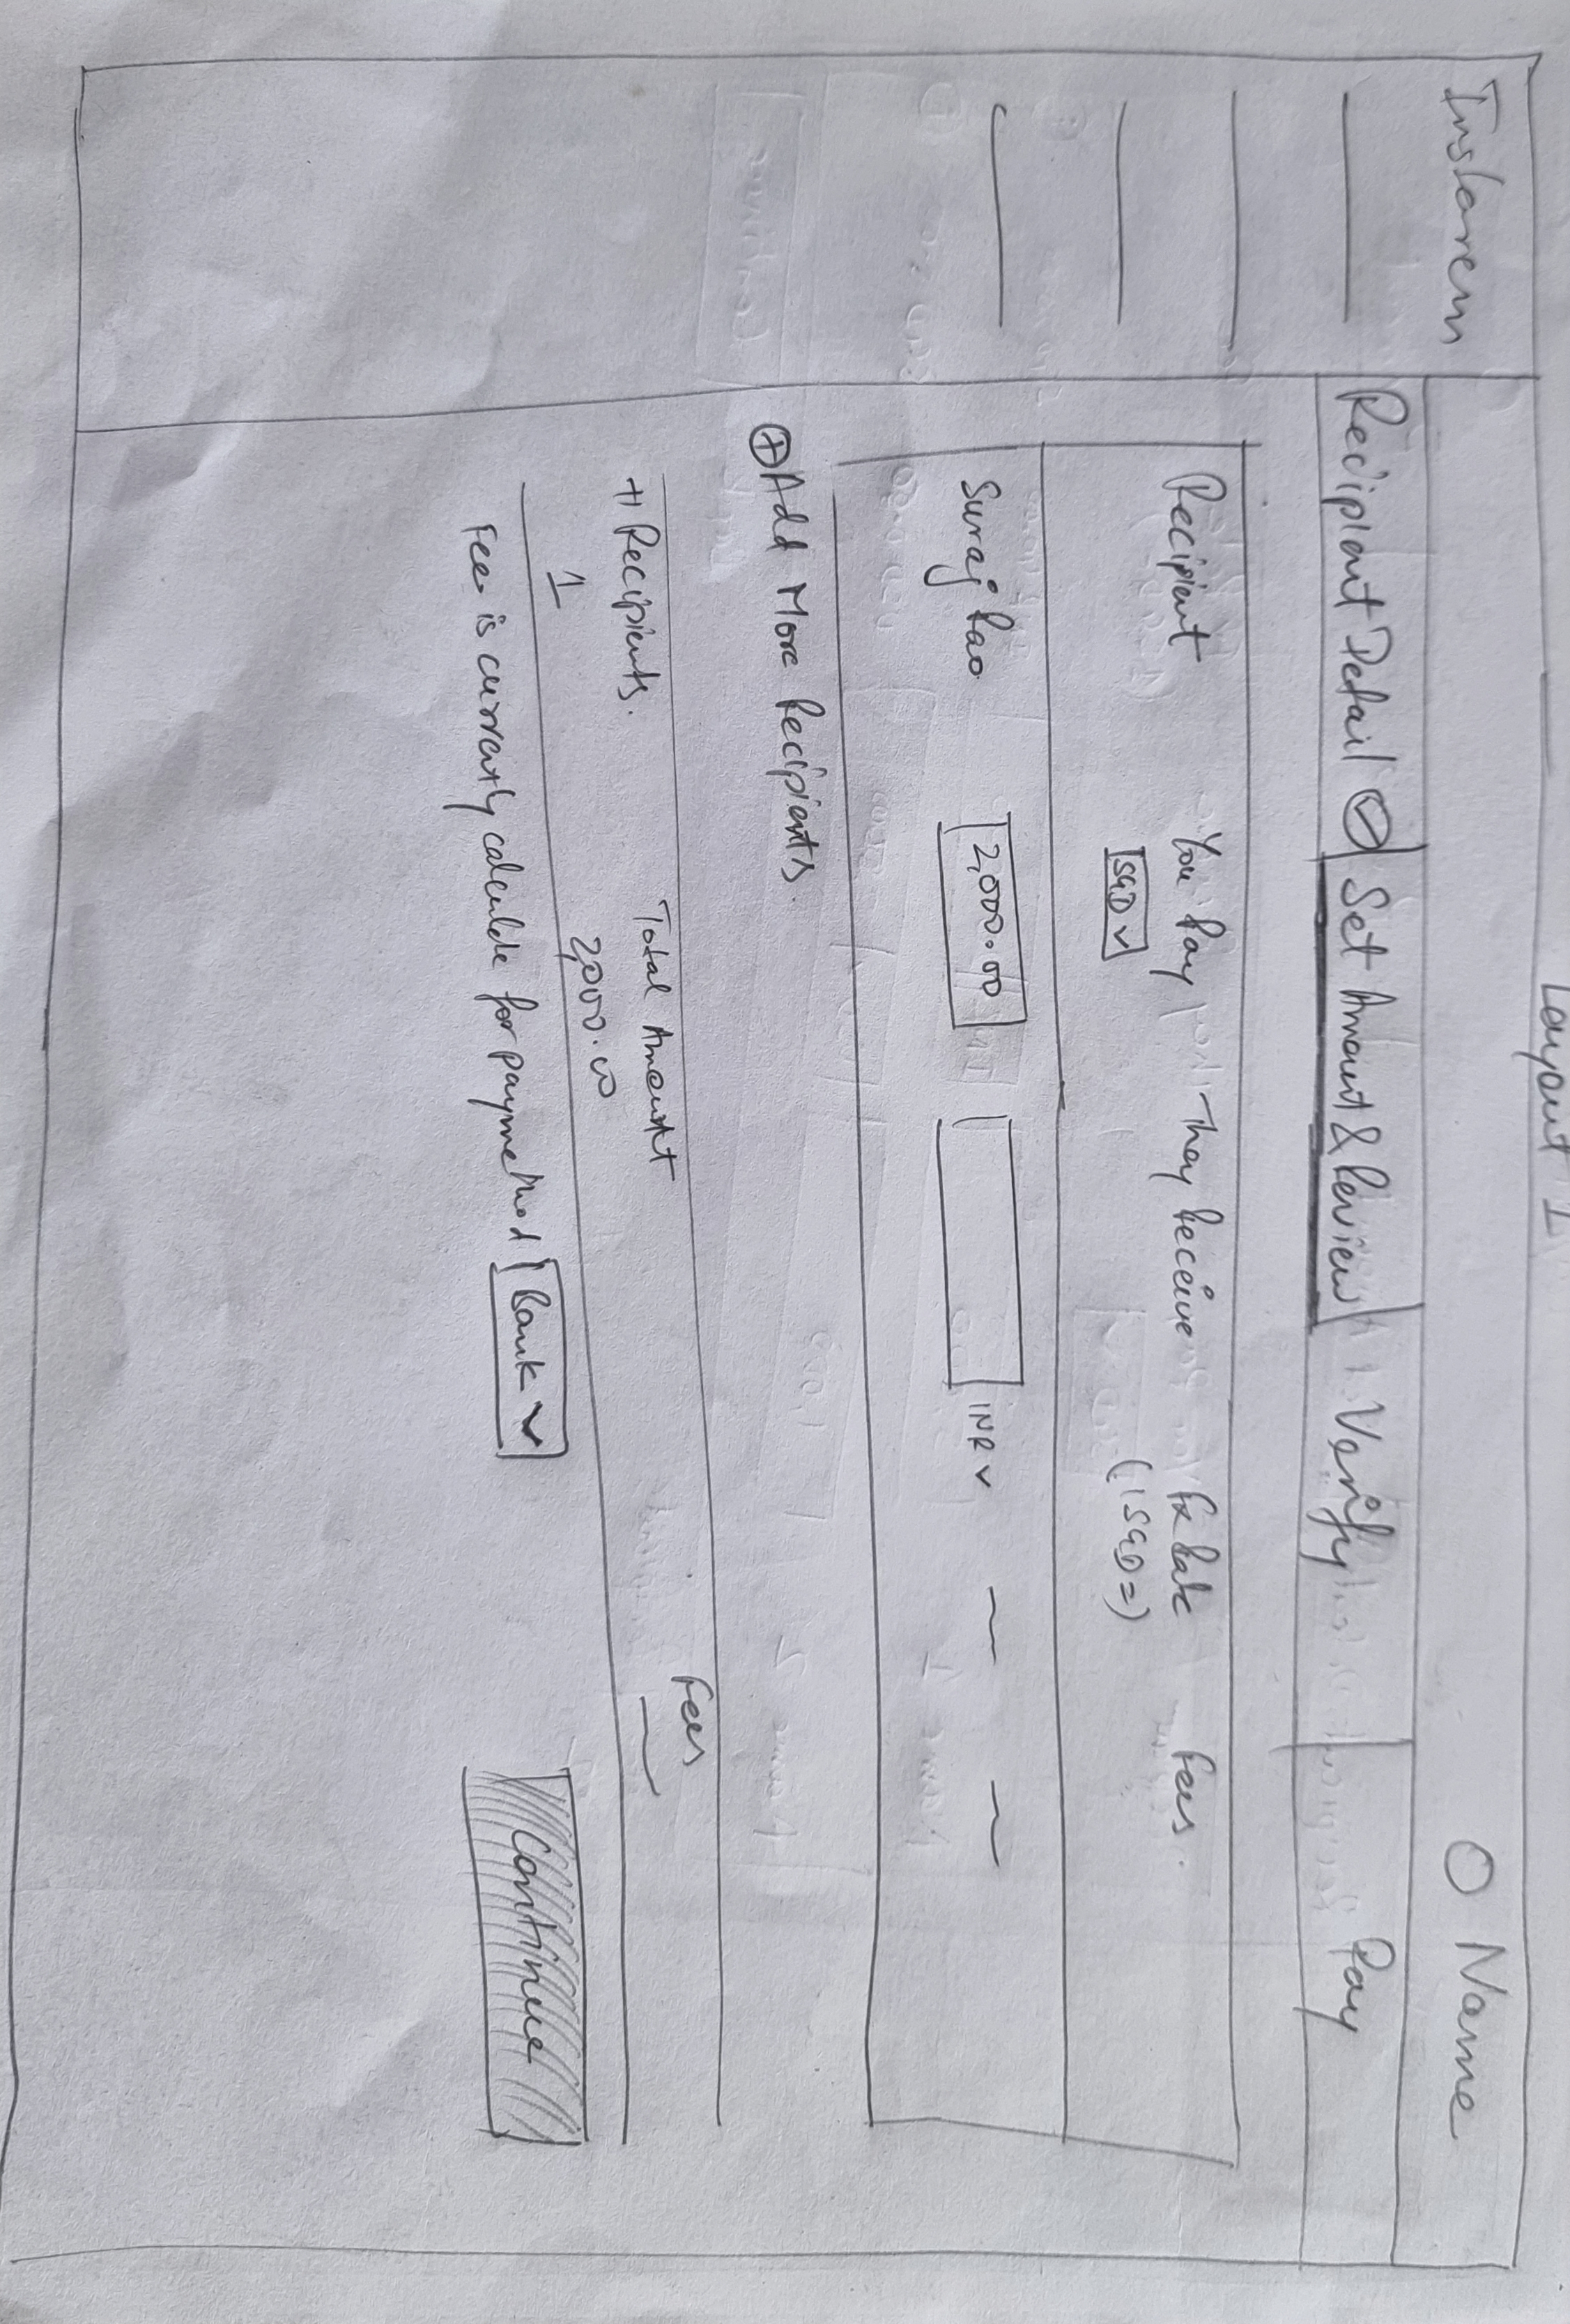 Layout 1
Instarem
Name
Recipient Detail
Set Amount & Review
Verify
Pay
Recipient
You Pay
They Receive
Fx Rate
Fees.
SGD
(1 SGD =)
Suraj Rao
2,000.00
INR
Add More Recipients.
# Recipients.
Total Amount
Fees
1
2,000.00
Fee is currently calculate for paymethod
Bank
Continue